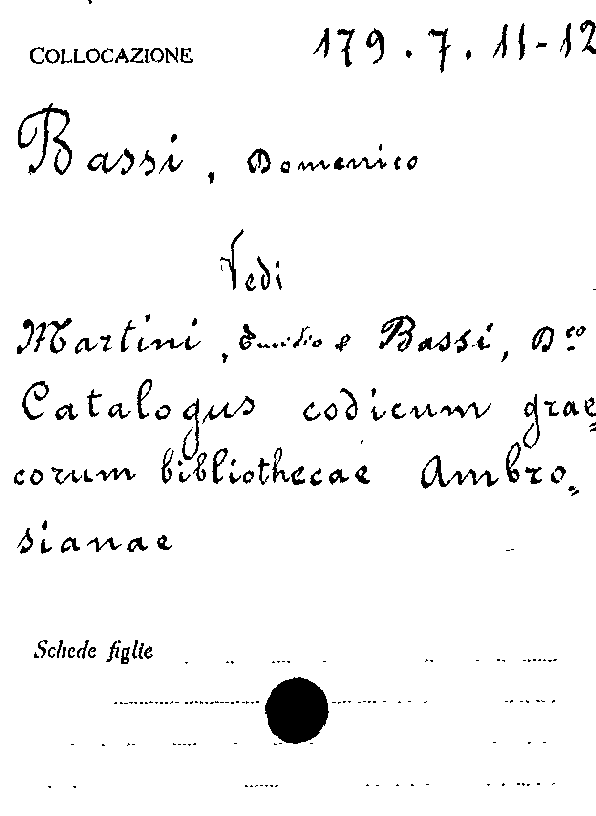 COLLOCAZIONE 179.7.11-12
Bassi, Domenico
Vedi
Martini, Emidio e Bassi, D.co
Catalogus codicum grae=
corum bibliothecae Ambro=
sianae
Schede figlie